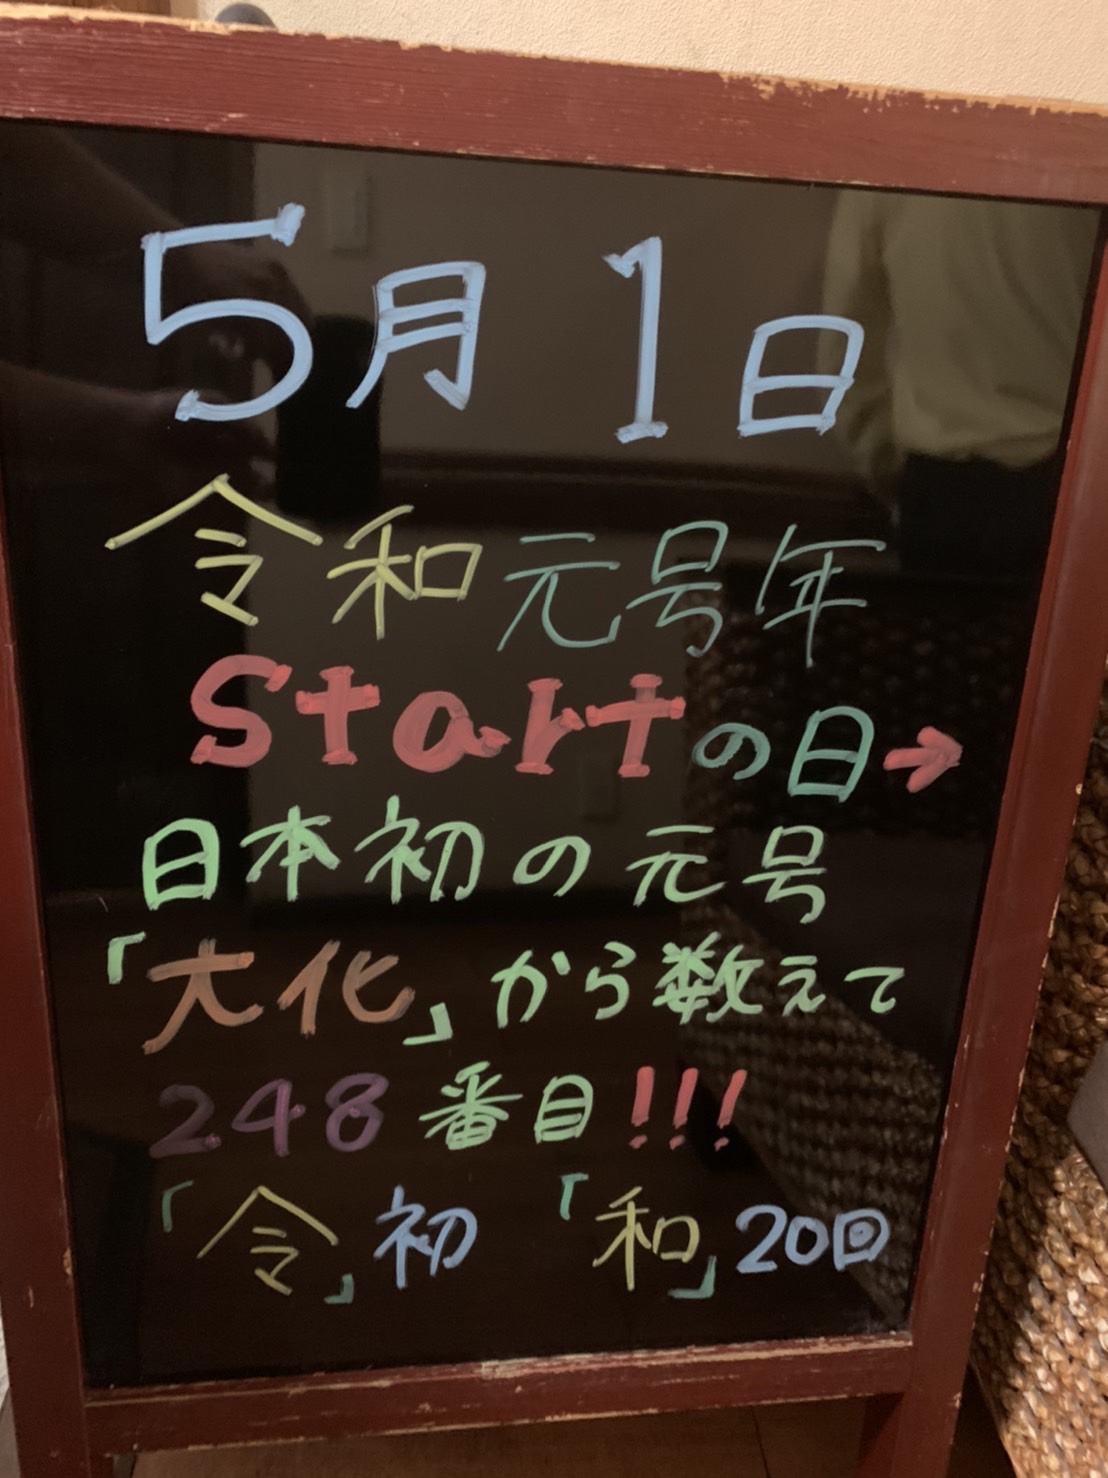 5月1日
令和元号年
Startの日→
日本初の元号
「大化」から数えて
248番目!!!
「令」初 「和」20回